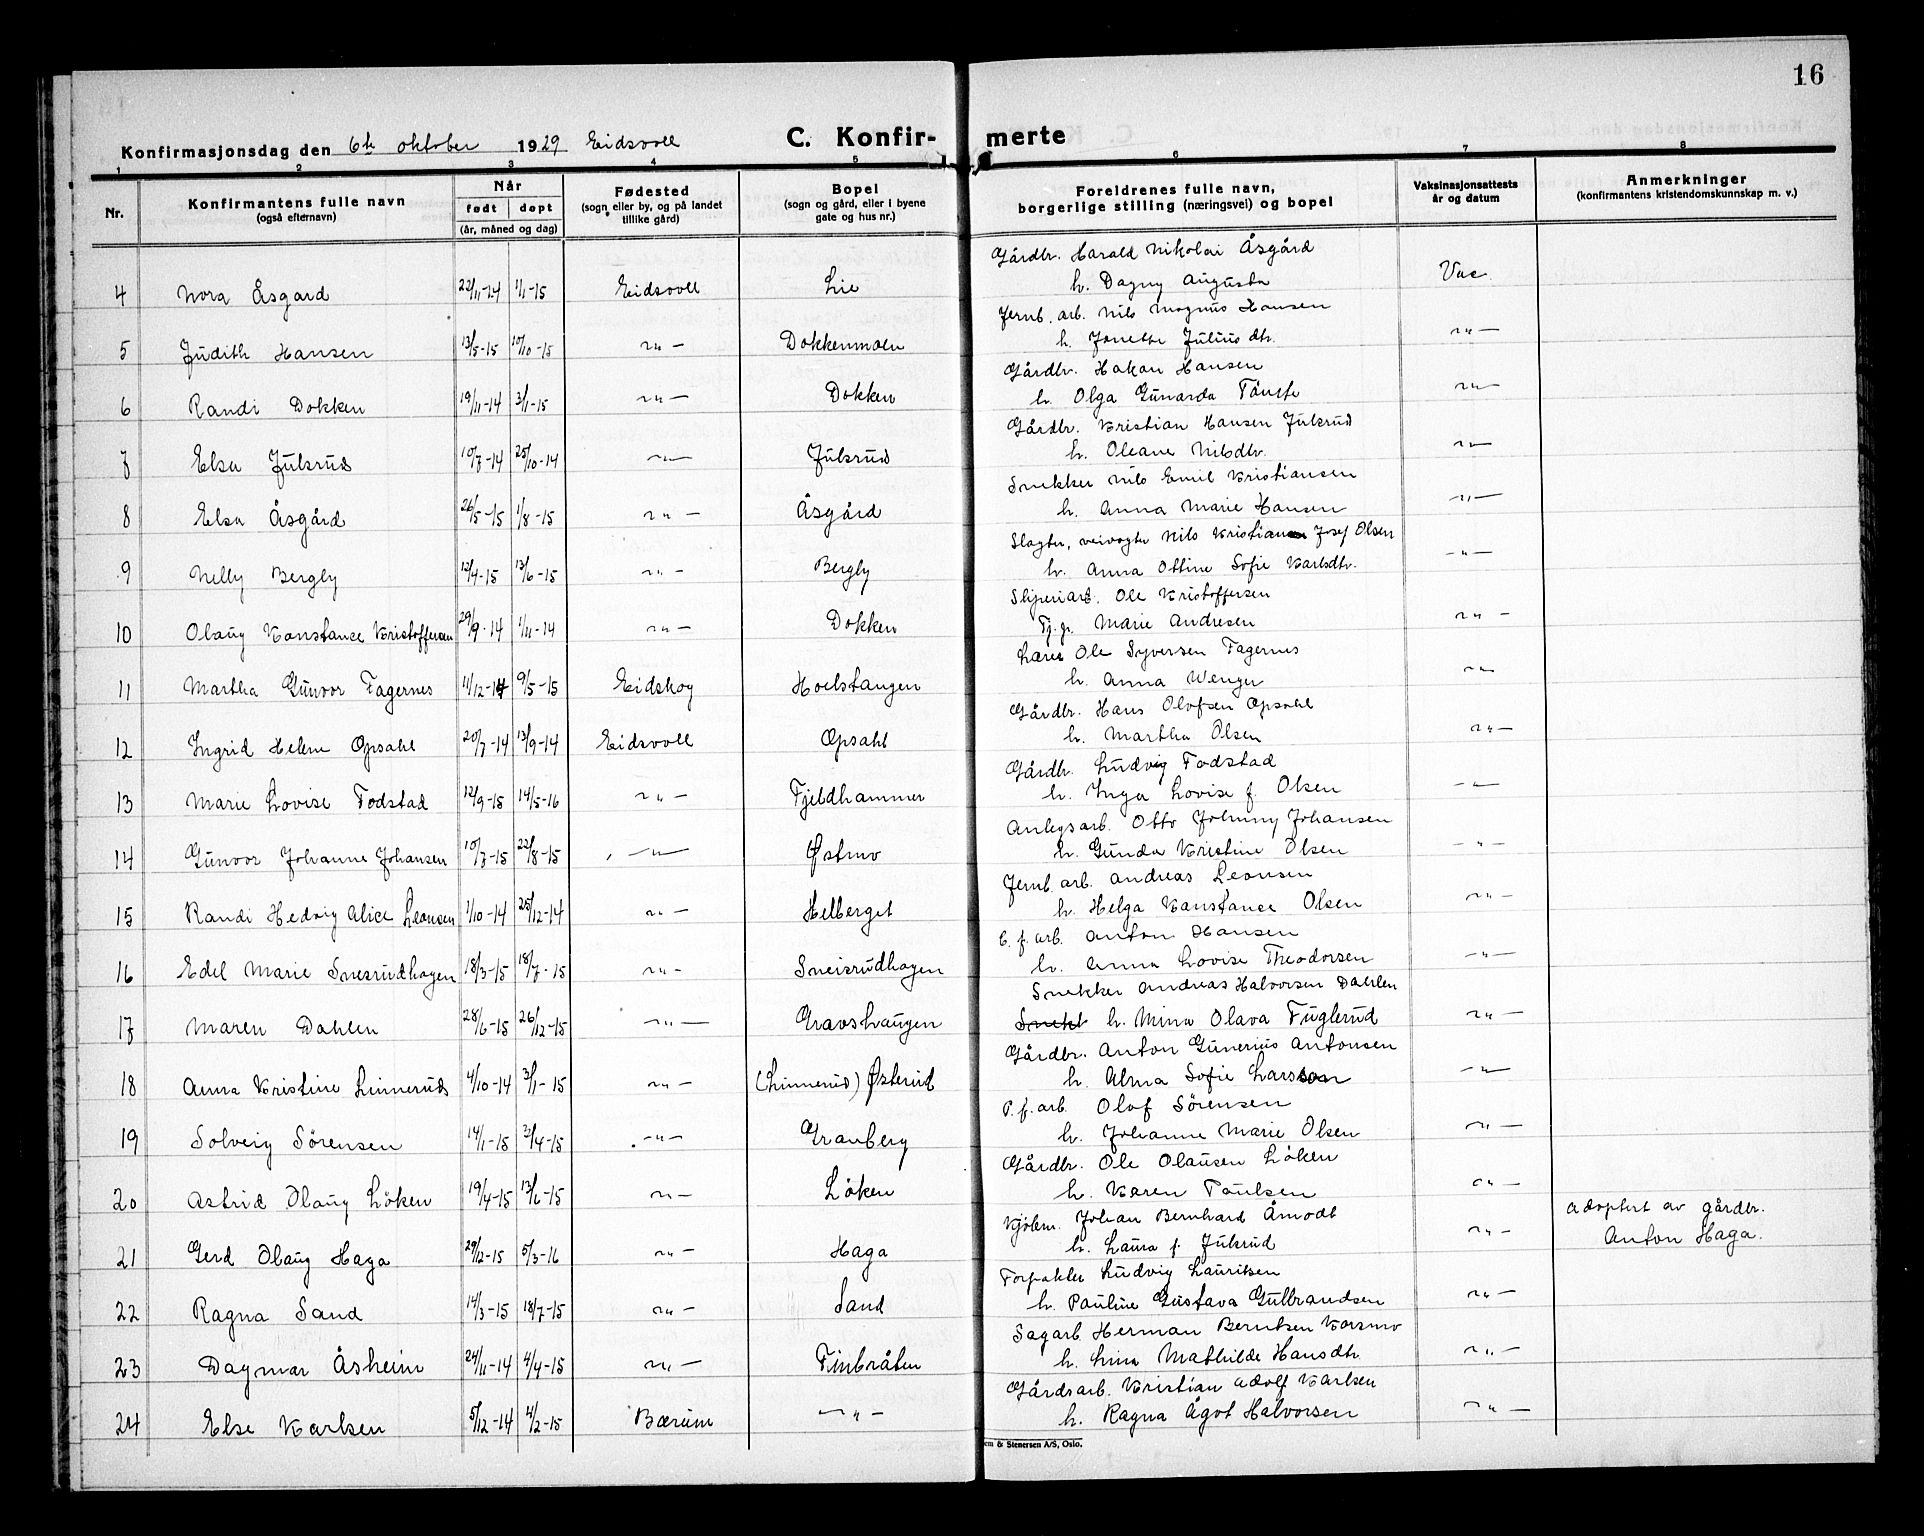 16
Konfirmasjonsdag den 6te oktober 1929 Eidsvoll C. Konfir- merte
1 2 3 4 5 6 7 8
Nr. Konfirmantens fulle navn (også efternavn) Når født døpt (år, måned og dag) Fødested (sogn eller by, og på landet tillike gård) Bopel (sogn og gård, eller i byene gate og hus nr.) Foreldrenes fulle navn, borgerlige stilling (næringsvei) og bopel Vaksinasjonsattests år og datum Anmerkninger (konfirmantens kristendomskunnskap m. v.)
Gårdbr. Harald Nikolai Åsgård
4 Nora Åsgård 22/11-14 1/1-15 Eidsvoll Lie h. Dagny Augusta Vac.
Jernb. arb. Nils Magnus Hansen
5 Judith Hansen 13/5-15 10/10-15 -"- Dokkenmoen h. Jonette Juliusdtr. -"-
Gårdbr. Hakon Hansen
6 Randi Dokken 19/11-14 3/1-15 -"- Dokken h. Olga Gunarda Tönste -"-
Gårdbr. Kristian Hansen Julsrud
7 Elsa Julsrud 10/7-14 25/10-14 -"- Julsrud h. Oleane Nilsdtr. -"-
Snekker Nils Emil Kristiansen
8 Elsa Åsgård 26/5-15 1/8-15 -"- Åsgård h. Anna Marie Hansen -"-
Slagter, veivogter Nils Kristian Josef Olsen
9 Nelly Bergly 12/4-15 13/6-15 -"- Bergly h. Anna Ottine Sofie Karlsdtr. -"-
Sliperiarb. Ole Kristoffersen
10 Olaug Konstance Kristoffersen 29/9-14 1/11-14 -"- Dokken Tj.p. Marie Andresen -"-
Lærer Ole Syversen Fagernes
11 Martha Gunvor Fagernes 11/12-14 9/5-15 Eidskog Hoelstangen h. Anna Wenger -"-
Gårdbr. Hans Olofsen Opsahl
12 Ingrid Helene Opsahl 20/7-14 13/9-14 Eidsvoll Opsahl h. Martha Olsen -"-
Gårdbr. Ludvig Todstad
13 Marie Lovise Todstad 12/9-15 14/5-16 -"- Fjeldhammer h. Inga Lovise f. Olsen -"-
Anlegsarb. Otto Johnny Johansen
14 Gunvor Johanne Johansen 10/7-15 22/8-15 -"- Østmo h. Gunda Kristine Olsen -"-
Jernb. arb. Andreas Leonsen
15 Randi Hedvig Alice Leonsen 1/10-14 25/12-14 -"- Helberget h. Helga Konstance Olsen -"-
C. f. arb. Anton Hansen
16 Edel Marie Snesrudhagen 18/3-15 18/7-15 -"- Sneisrudhagen h. Anna Lovise Theodorsen -"-
Snekker Andreas Halvorsen Dahlen
17 Maren Dahlen 28/6-15 26/12-15 -"- Gravshaugen Snekk h. Mina Olava Fuglerud -"-
Gårdbr. Anton Gunerius Antonsen
18 Anna Kristine Linnerud 4/10-14 3/1-15 -"- (Linnerud) Østerud h. Alma Sofie Larsson -"-
P. f. arb. Olof Sörensen
19 Solveig Sörensen 14/1-15 3/4-15 -"- Granberg h. Johanne Marie Olsen -"-
Gårdbr. Ole Olausen Löken
20 Astrid Olaug Löken 19/4-15 13/6-15 -"- Löken h. Karen Paulsen -"-
Kjölem. Johan Bernhard Åmodt adoptert av gårdbr.
21 Gerd Olaug Haga 29/12-15 5/3-16 -"- Haga h. Laura f. Julsrud -"- Anton Haga.
Forpakter Ludvig Lauritsen
22 Ragna Sand 14/3-15 18/7-15 -"- Sand h. Pauline Gustava Gulbrandsen -"-
Sagarb. Herman Berntsen Korsmo
23 Dagmar Åsheim 24/11-14 4/4-15 -"- Finbråten h. Lina Mathilde Hansdtr. -"-
Gårdsarb. Kristian Adolf Karlsen
24 Else Karlsen 5/12-14 4/2-15 Bærum -"- h. Ragna Ågot Halvorsen -"-
em & Stenersen A/S, Oslo.